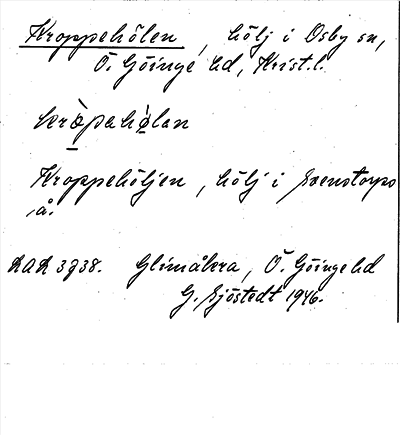 Kroppehölen, hölj i Osby sn,
Ö. Göinge hd, Krist. l.
kròpahọ̀lan
Kroppehöljen, hölj i Svenstorps
å.
LAL 3738. Glimåkra, Ö. Göinge hd
G. Sjöstedt 1946.